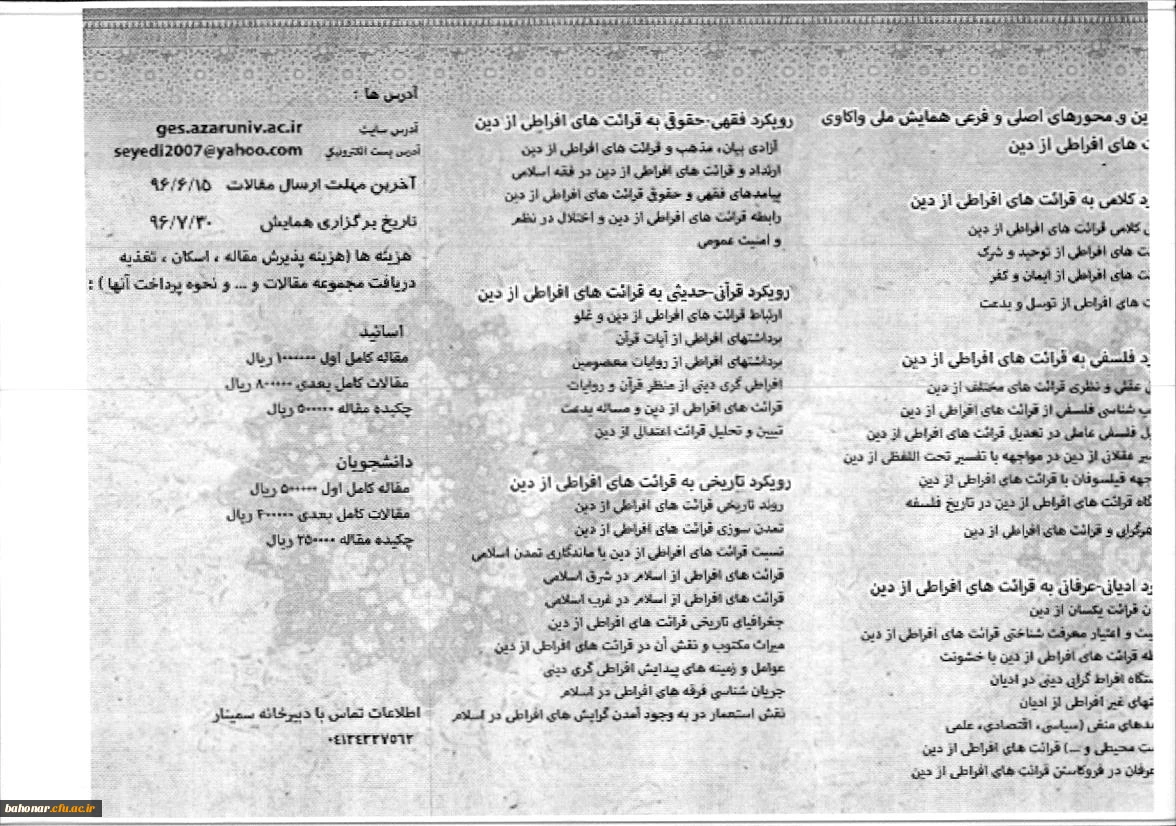 ین و محورهای اصلی و فرعی همایش ملی واکاوی
ت های افراطی از دین
د کلامی به قرائت های افراطی از دین
ی کلامی قرائت های افراطی از دین
ت های افراطی از توحید و شرک
ت های افراطی از ایمان و کفر
ت های افراطی از توسل و بدعت
د فلسفی به قرائت های افراطی از دین
ی عقلی و نظری قرائت های مختلف از دین
ب شناسی فلسفی از قرائت های افراطی از دین
ل فلسفی عاملی در تعدیل قرائت های افراطی از دین
یر عقلانی از دین در مواجهه با تفسیر تحت اللفظی از دین
جهه فیلسوفان با قرائت های افراطی از دین
گاه قرائت های افراطی از دین در تاریخ فلسفه
هرگرایی و قرائت های افراطی از دین
د ادیانی-عرفانی به قرائت های افراطی از دین
ن قرائت یکسان از دین
یت و اعتبار معرفت شناختی قرائت های افراطی از دین
طه قرائت های افراطی از دین با خشونت
ستگاه افراط گرایی دینی در ادیان
تهای غیر افراطی از ادیان
مدهای منفی (سیاسی، اقتصادی، علمی
ست محیطی و ...) قرائت های افراطی از دین
عرفان در فروکاستن قرائت های افراطی از دین
رویکرد فقهی-حقوقی به قرائت های افراطی از دین
آزادی بیان، مذهب و قرائت های افراطی از دین
ارتداد و قرائت های افراطی از دین در فقه اسلامی
پیامدهای فقهی و حقوقی قرائت های افراطی از دین
رابطه قرائت های افراطی از دین و اختلال در نظم
و امنیت عمومی
رویکرد قرآنی-حدیثی به قرائت های افراطی از دین
ارتباط قرائت های افراطی از دین و غلو
برداشتهای افراطی از آیات قرآن
برداشتهای افراطی از روایات معصومین
افراطی گری دینی از منظر قرآن و روایات
قرائت های افراطی از دین و مساله بدعت
تبیین و تحلیل قرائت اعتدالی از دین
رویکرد تاریخی به قرائت های افراطی از دین
روند تاریخی قرائت های افراطی از دین
تمدن سوزی قرائت های افراطی از دین
نسبت قرائت های افراطی از دین با ماندگاری تمدن اسلامی
قرائت های افراطی از اسلام در شرق اسلامی
قرائت های افراطی از اسلام در غرب اسلامی
جغرافیای تاریخی قرائت های افراطی از دین
میراث مکتوب و نقش آن در قرائت های افراطی از دین
عوامل و زمینه های پیدایش افراطی گری دینی
جریان شناسی فرقه های افراطی در اسلام
نقش استعمار در به وجود آمدن گرایش های افراطی در اسلام
آدرس ها :
آدرس سایت ges.azaruniv.ac.ir
آدرس پست الکترونیکی seyedi2007@yahoo.com
آخرین مهلت ارسال مقالات ۹۶/۶/۱۵
تاریخ برگزاری همایش ۹۶/۷/۳۰
هزینه ها (هزینه پذیرش مقاله ، اسکان ، تغذیه
دریافت مجموعه مقالات و ... و نحوه پرداخت آنها ) :
اساتید
مقاله کامل اول ۱۰۰۰۰۰۰ ریال
مقالات کامل بعدی ۸۰۰۰۰۰ ریال
چکیده مقاله ۵۰۰۰۰۰ ریال
دانشجویان
مقاله کامل اول ۵۰۰۰۰۰ ریال
مقالات کامل بعدی ۴۰۰۰۰۰ ریال
چکیده مقاله ۲۵۰۰۰۰ ریال
اطلاعات تماس با دبیرخانه سمینار
۰۴۱۳۴۳۲۷۵۶۲
bahonar.cfu.ac.ir